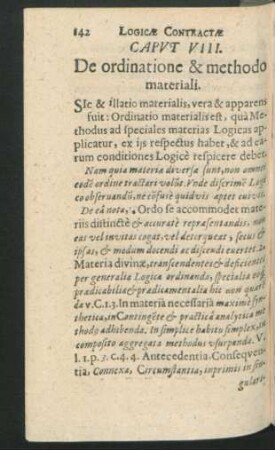 142 LOGICÆ CONTRACTÆ
CAPVT VIII.
De ordinatione & methodo
materiali.
SIc & illatio materialis, vera & apparens
fuit: Ordinatio materialis est, quà Me-
thodus ad speciales materias Logicas ap-
plicatur, ex ijs respectus habet, & ad ea-
rum conditiones Logicè respicere debet.
Nam quia materia diversæ sunt, non omnes
eodē ordine tractari volūt. Vnde discrimē Logi-
cè observandū, ne cōfusiè quidvis aptes cuivis.
De eâ nota, 1. Ordo se accommodet mate-
riis distinctè & accuratè repræsentandis, non
eas vel invitas cogat, vel detorqueat, secus &
ipsas, & modum dicendi ac discendi
Materia divina, transcendentes & deficientes
per generalia Logica ordinanda, specialia
prædicabilia & prædicamentalia hic non
da v. C. 1. 3. In materia necessaria maximè syn-
thetica, in Contingēte & practicâ analytica me-
thodo adhibenda. In simplice habitu simplex, in
composito aggregata methodus vsurpanda. V.
l. 1. p. 3. c. 4. 4. Antecedentia Conseqven-
tia, Connexa, Circumstantia, inprimis in sin-
gulari-